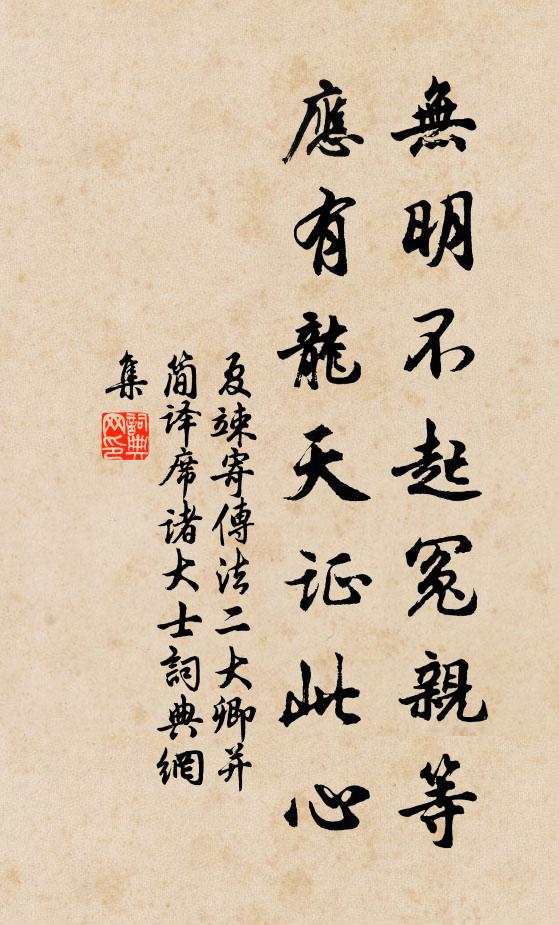 無明不起冤親等
應有龍天证此心
夏竦寄傳法二大卿并
简译席诸大士詞典網
集
詞典
网印